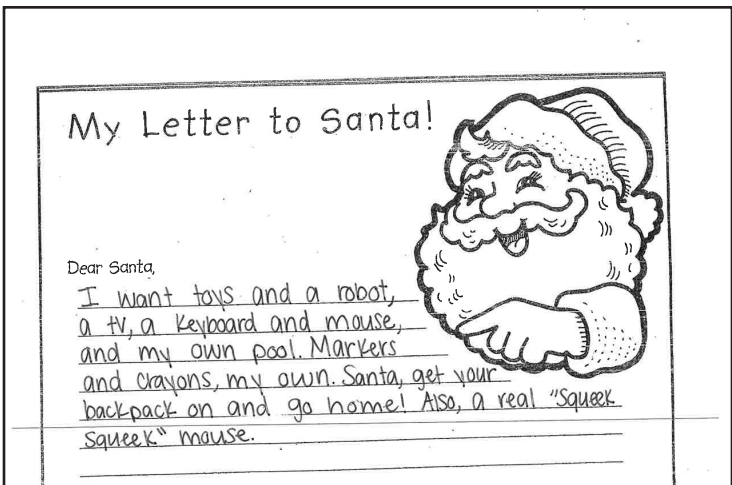 My Letter to Santa!
Dear Santa,
I want toys and a robot,
a tv, a keyboard and mouse,
and my own pool. Markers
and crayons, my own. Santa, get your
backpack on and go home! Also, a real "Squeek
Squeek" mouse.